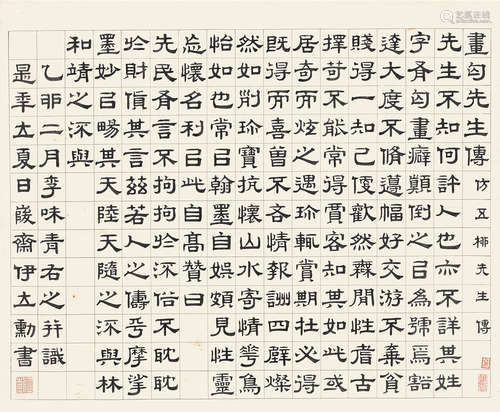 畫匃先生傳 仿五柳先生傳
先生不知何許人也亦不詳其姓
字有匃畫癖顛倒之㠯為號焉豁
達大度不脩邊幅好交游不棄貧
賤得一知己便歡然無間性耆古
擇苛不能常得賓客知其如此或
居奇而炫之遇珍輒賞期壯必得
既得而喜曾不吝情報酬四壁燦
然如剖珍寶抗懷山水寄情花鳥
怡如也常㠯翰墨自娛頗見性靈
忘懷名利㠯此自高贊曰
先民有言不拘拘於俗不耽耽
於財其言茲若人之儔乎摩挲
墨妙㠯暢其天陸天隨之與林
和靖之與
乙卯二月李味青名之并識
是年立夏日峻齋伊立勳書